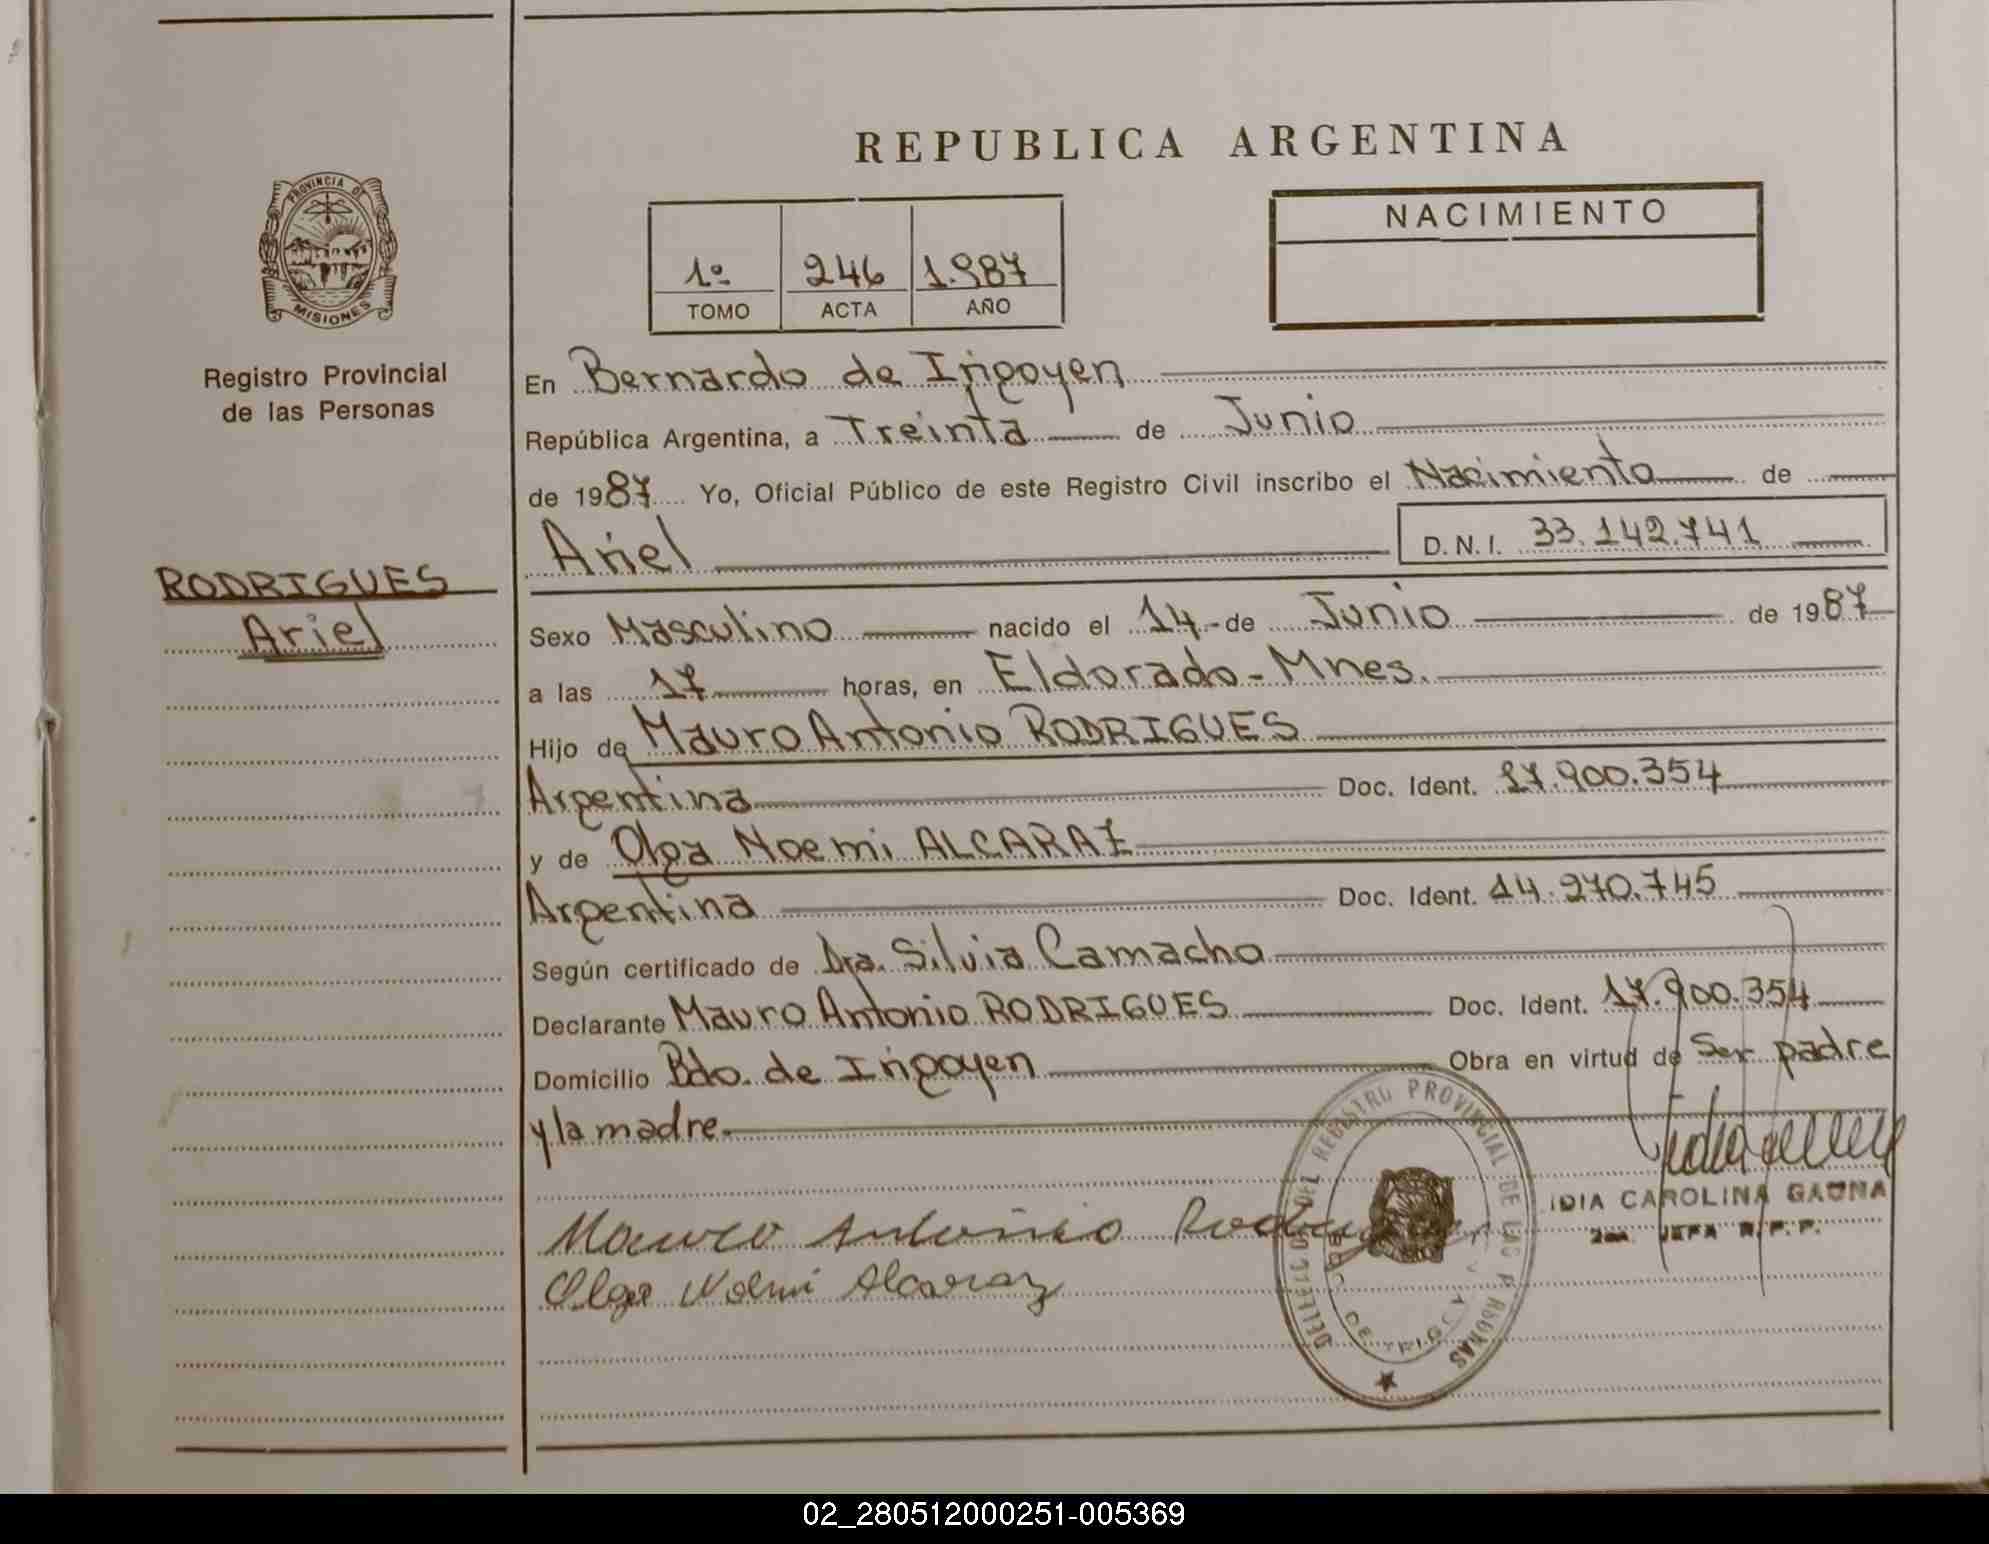 REPUBLICA ARGENTINA
PROVINCIA DE
MISIONES
Registro Provincial
de las Personas
RODRIGUES
Ariel
1º 246 1.987
TOMO ACTA AÑO
NACIMIENTO
En Bernardo de Irigoyen
República Argentina, a Treinta de Junio
de 1987 Yo, Oficial Público de este Registro Civil inscribo el Nacimiento de
Ariel D.N.I. 33.142.741
Sexo Masculino nacido el 14 - de Junio de 1987
a las 17 horas, en Eldorado - Mnes.
Hijo de Mauro Antonio RODRIGUES
Argentina Doc. Ident. 17.900.354
y de Olga Noemi ALCARAZ
Argentina Doc. Ident. 14.270.745
Según certificado de Dra. Silvia Camacho
Declarante Mauro Antonio RODRIGUES Doc. Ident. 17.900.354
Domicilio Bdo. de Irigoyen Obra en virtud de Ser padre
y la madre.
IDIA CAROLINA GAUNA
2da. JEFA R.P.P.
Mauro Antonio
Olga Noemi Alcaraz
DEL REGISTRO PROVINCIAL DE LAS PERSONAS
02_280512000251-005369